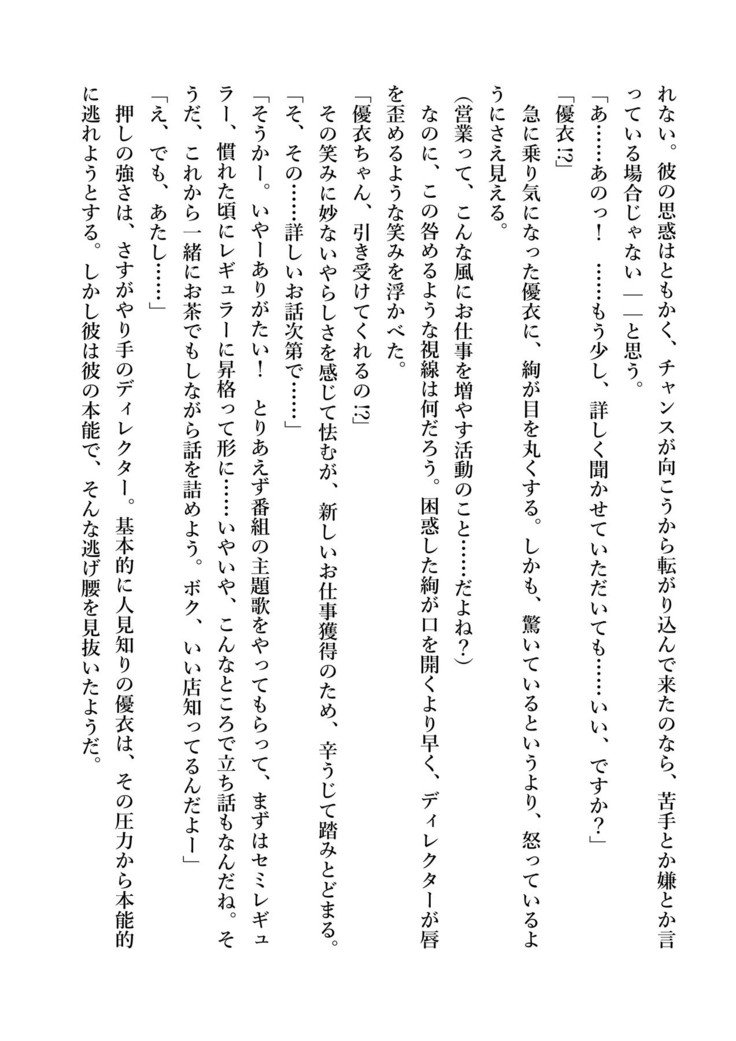 れない。彼の思惑はともかく、チャンスが向こうから転がり込んで来たのなら、苦手とか嫌とか言
っている場合じゃない——と思う。
「あ……あのっ！　……もう少し、詳しく聞かせていただいても……いい、ですか？」
「優衣!?」
　急に乗り気になった優衣に、絢が目を丸くする。しかも、驚いているというより、怒っているよ
うにさえ見える。
（営業って、こんな風にお仕事を増やす活動のこと……だよね？）
　なのに、この咎めるような視線は何だろう。困惑した絢が口を開くより早く、ディレクターが唇
を歪めるような笑みを浮かべた。
「優衣ちゃん、引き受けてくれるの!?」
　その笑みに妙ないやらしさを感じて怯むが、新しいお仕事獲得のため、辛うじて踏みとどまる。
「そ、その……詳しいお話次第で……」
「そうかー。いやーありがたい！　とりあえず番組の主題歌をやってもらって、まずはセミレギュ
ラー、慣れた頃にレギュラーに昇格って形に……いやいや、こんなところで立ち話もなんだね。そ
うだ、これから一緒にお茶でもしながら話を詰めよう。ボク、いい店知ってるんだよー」
「え、でも、あたし……」
　押しの強さは、さすがやり手のディレクター。基本的に人見知りの優衣は、その圧力から本能的
に逃れようとする。しかし彼は彼の本能で、そんな逃げ腰を見抜いたようだ。